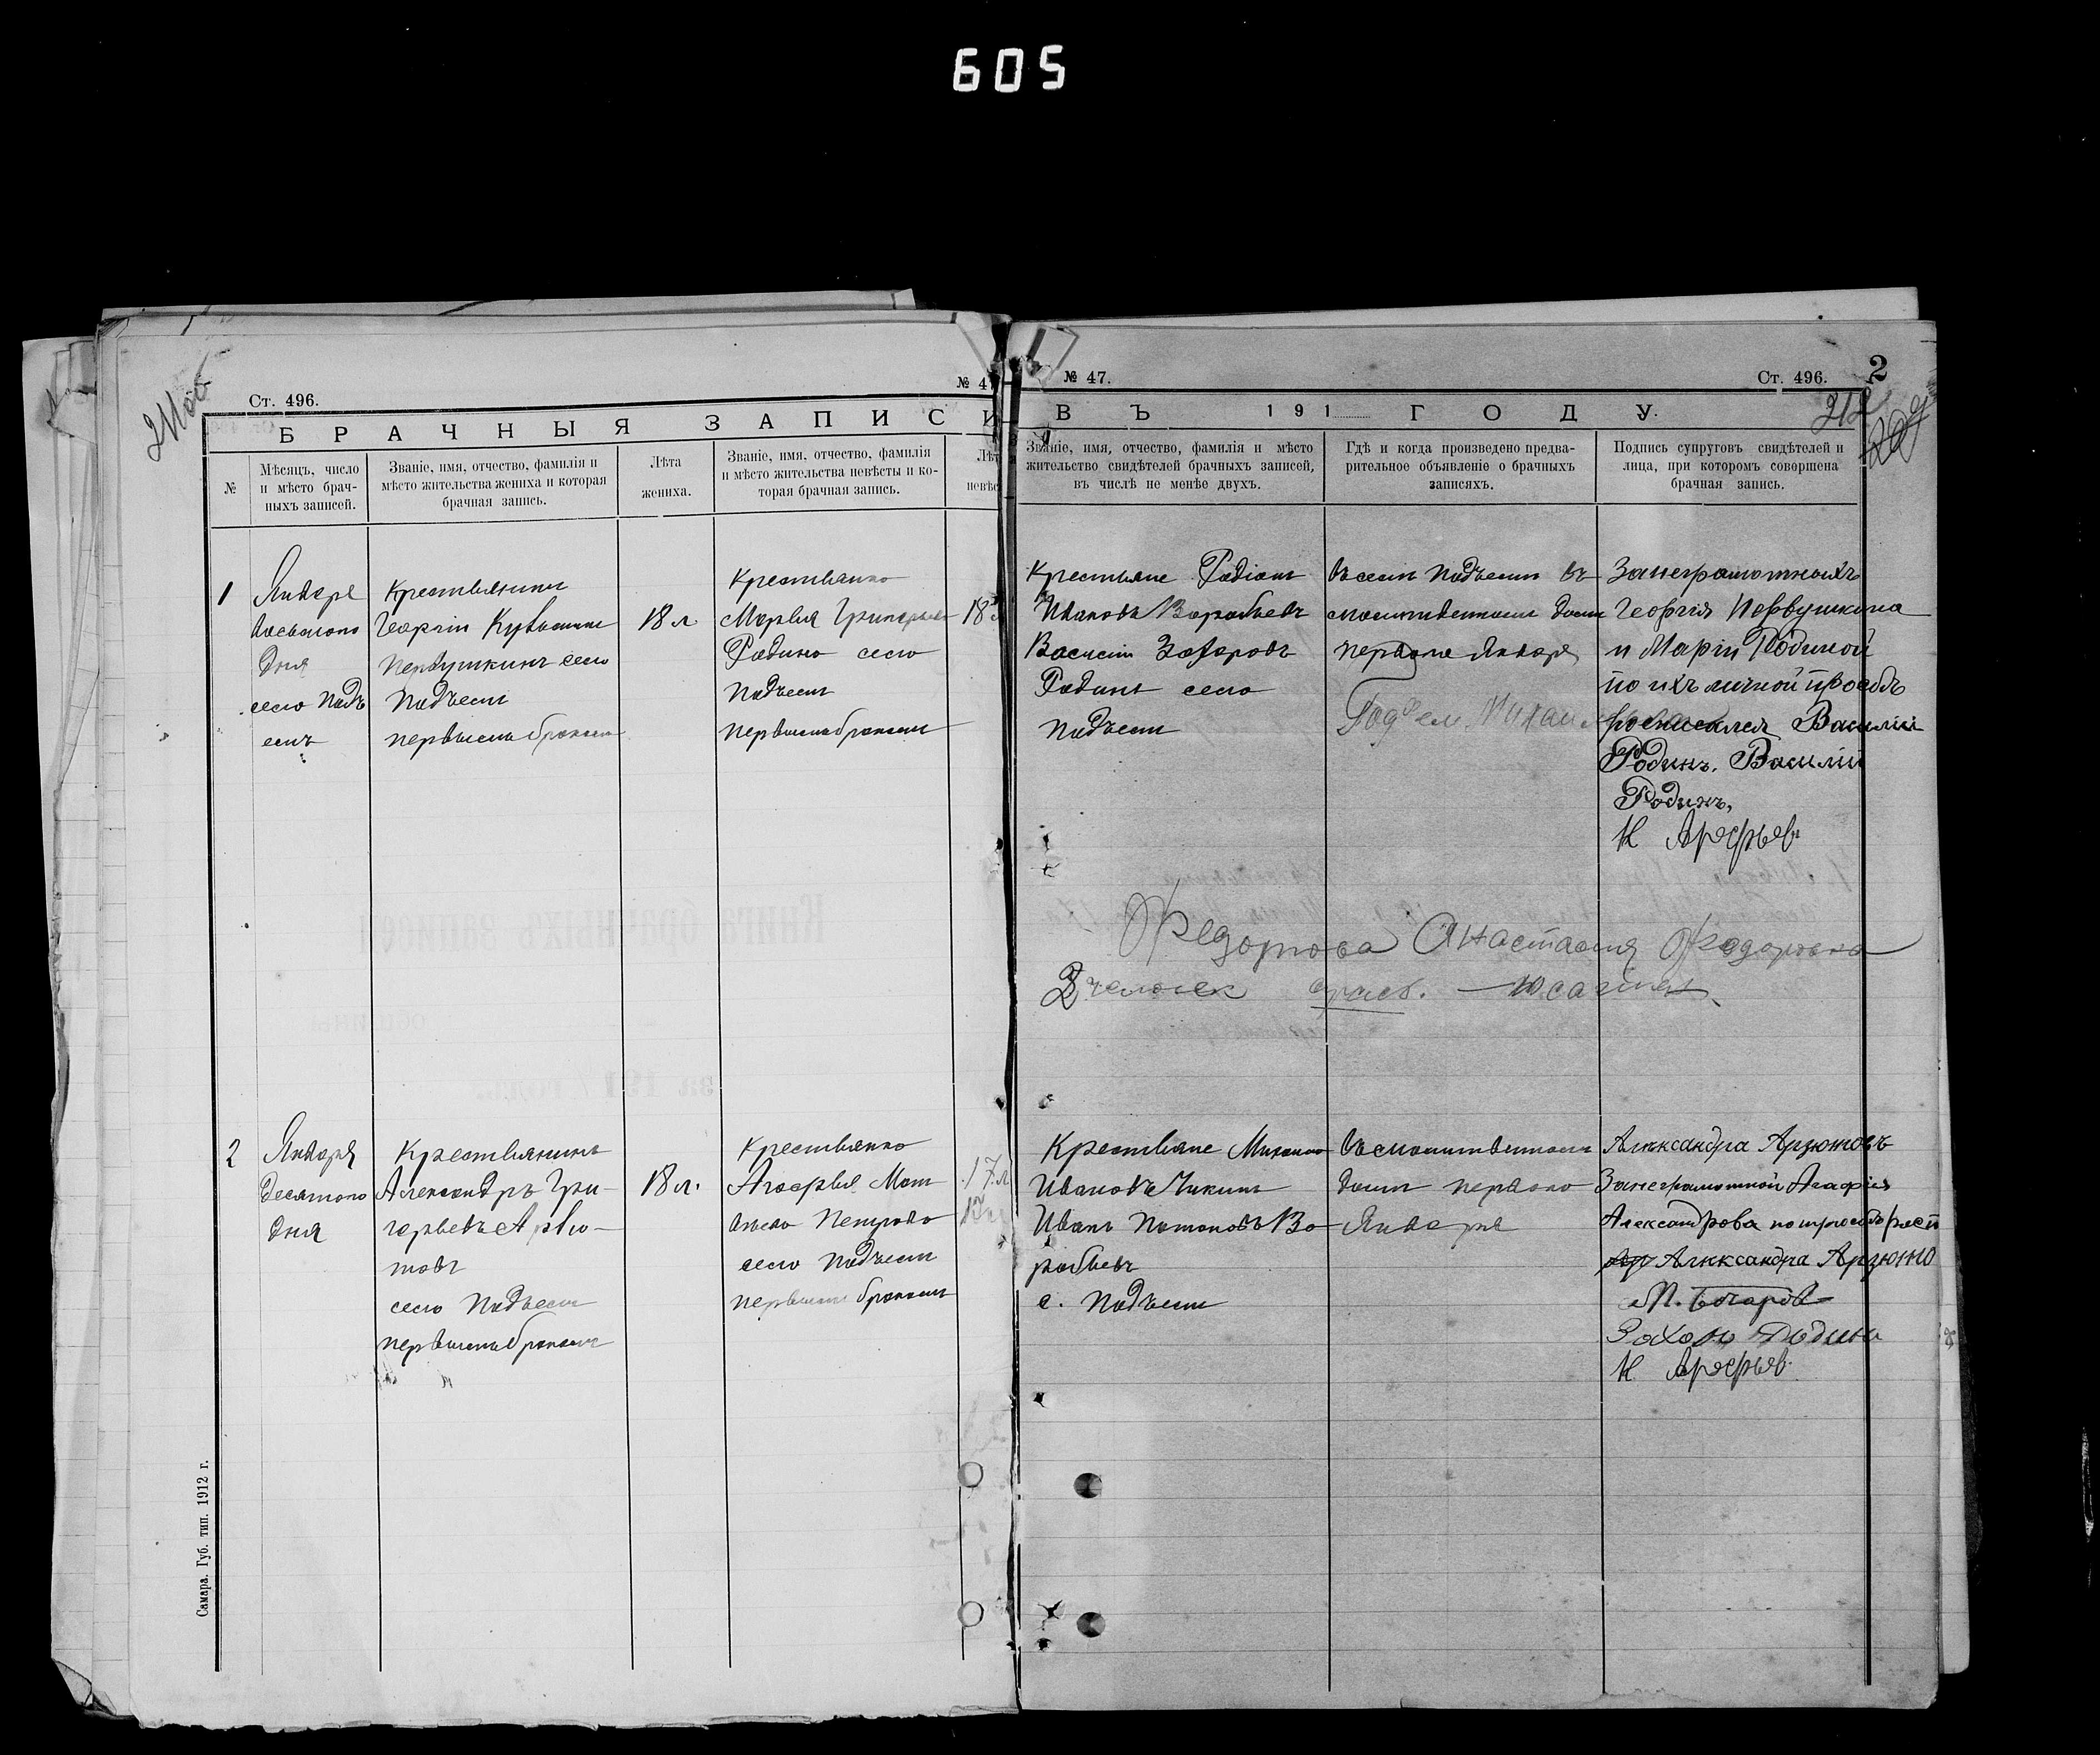 605
211об
Ст. 496.
№ 47
БРАЧНЫЯ ЗАПИСИ
№
Мѣсяцъ, число
и мѣсто брач-
ныхъ записей.
Званіе, имя, отчество, фамилія и
мѣсто жительства жениха и которая
брачная запись.
Лѣта
жениха.
Званіе, имя, отчество, фамилія
и мѣсто жительства невѣсты и ко-
торая брачная запись.
Лѣт
невѣс
1
Января
восьмого
дня
село Подъ
емъ
Крестьянинъ
Георгій
Первушкинъ село
Подъемъ
первымъ бракомъ
18 л.
Крестьянка
Марья Григорьева
Родина село
Подъемъ
первымъ бракомъ
18
2
Января
десятого
дня
Крестьянинъ
Александръ Гри-
горьевъ Арзю-
товъ
село Подъемъ
первымъ бракомъ
18 л.
Крестьянка
Агафья Мат
вѣева Петрова
село Подъемъ
первымъ бракомъ
17 л
Самара. Губ. тип. 1912 г.
№ 47.
Ст. 496.
2
212
ВЪ 191 ГОДУ.
Званіе, имя, отчество, фамилія и мѣсто
жительство свидѣтелей брачныхъ записей,
въ числѣ не менѣе двухъ.
Гдѣ и когда произведено предва-
рительное объявленіе о брачныхъ
записяхъ.
Подпись супруговъ свидѣтелей и
лица, при которомъ совершена
брачная запись.
Крестьяне Родіонъ
Ивановъ Воробьевъ
Василій Захаровъ
Родинъ село
Подъемъ
въ селѣ Подъемъ въ
молитвенномъ домѣ
первого Января
За неграмотныхъ
Георгія Первушкина
и Маріи Родиной
по ихъ личной просьбѣ
росписался Василій
Родинъ. Василій
Родинъ.
К Арефьев
Федотова Анастасия Федоровна
Крестьяне Михаилъ
Ивановъ Чикинъ
Иванъ Потаповъ Во-
робьевъ
с. Подъемъ
въ молитвенномъ
домѣ первого
Января
Алѣксандра Арзютовъ
За неграмотной Агафіи
Александрова по просьбѣ росп
Алѣксандра Арзюто
П. Бочаров
Захаръ Родинъ
К Арефьев